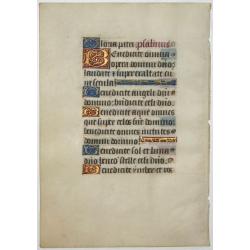 Gloria patri psalmus
Benedicite omnia
opera domini dño:
laudate & superexaltate eum
in secula
Benedicite angeli dñi
domino: bñdicite celi dño.
Benedicite aque omnes
que super celos sūt domino:
benedicite omnes virtutes
domini
Benedicite sol et luna
dño: stelle celi dño.
Benedicite ymber et ros